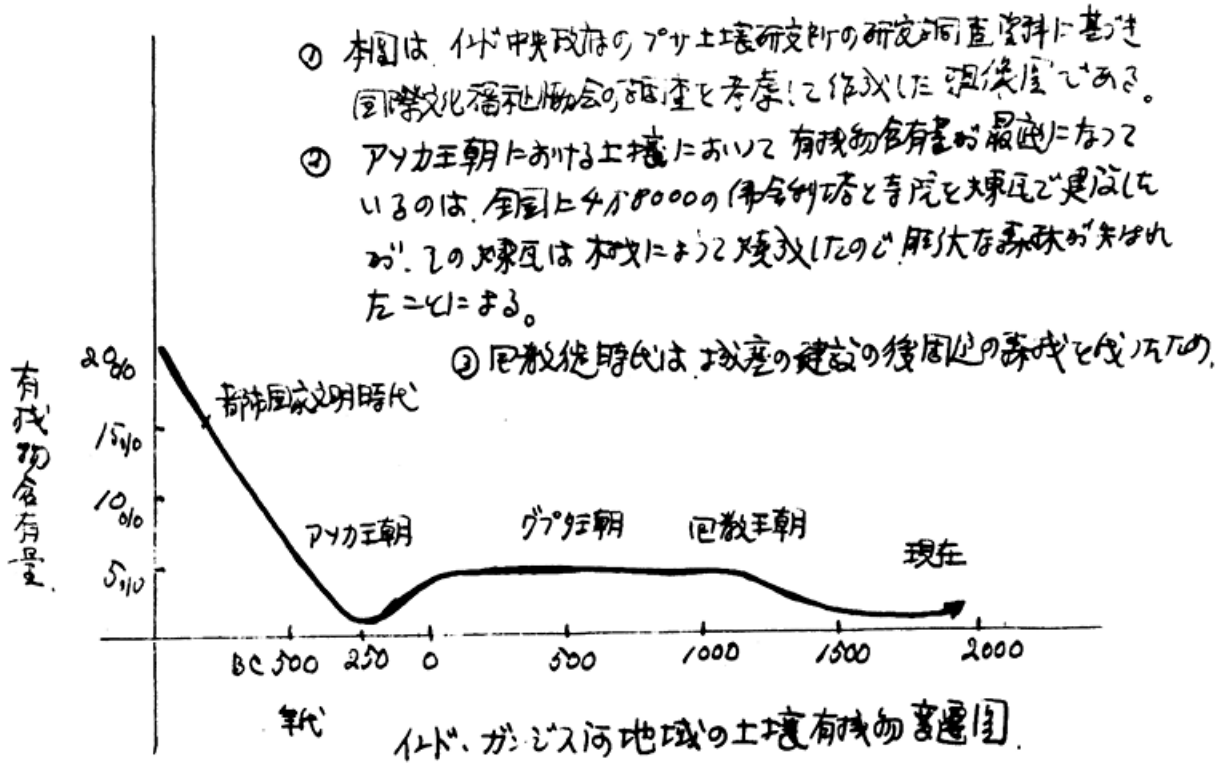 ① 本図は インド中央政府の プサ土壌研究所の研究調査資料に基づき
国際文化福祉協会の調査を考慮して作成した 想像図である。
② アソカ王朝における土壌において 有機物含有量が最底になって
いるのは、全国に4万8000の佛舎利塔と寺院を煉瓦で建設した
が、その煉瓦は木材によって焼成したので、膨大な森林が失はれ
たことによる。
③ 回教徒時代は 城塞の建設の後周辺の森林を伐ったため、
有機物含有量
20%
15%
10%
5%
都市国家文明時代
アソカ王朝
グプタ王朝
回教王朝
現在
BC 500 250 0 500 1000 1500 2000
年代
インド、ガンジス河地域の土壌有機物変遷図